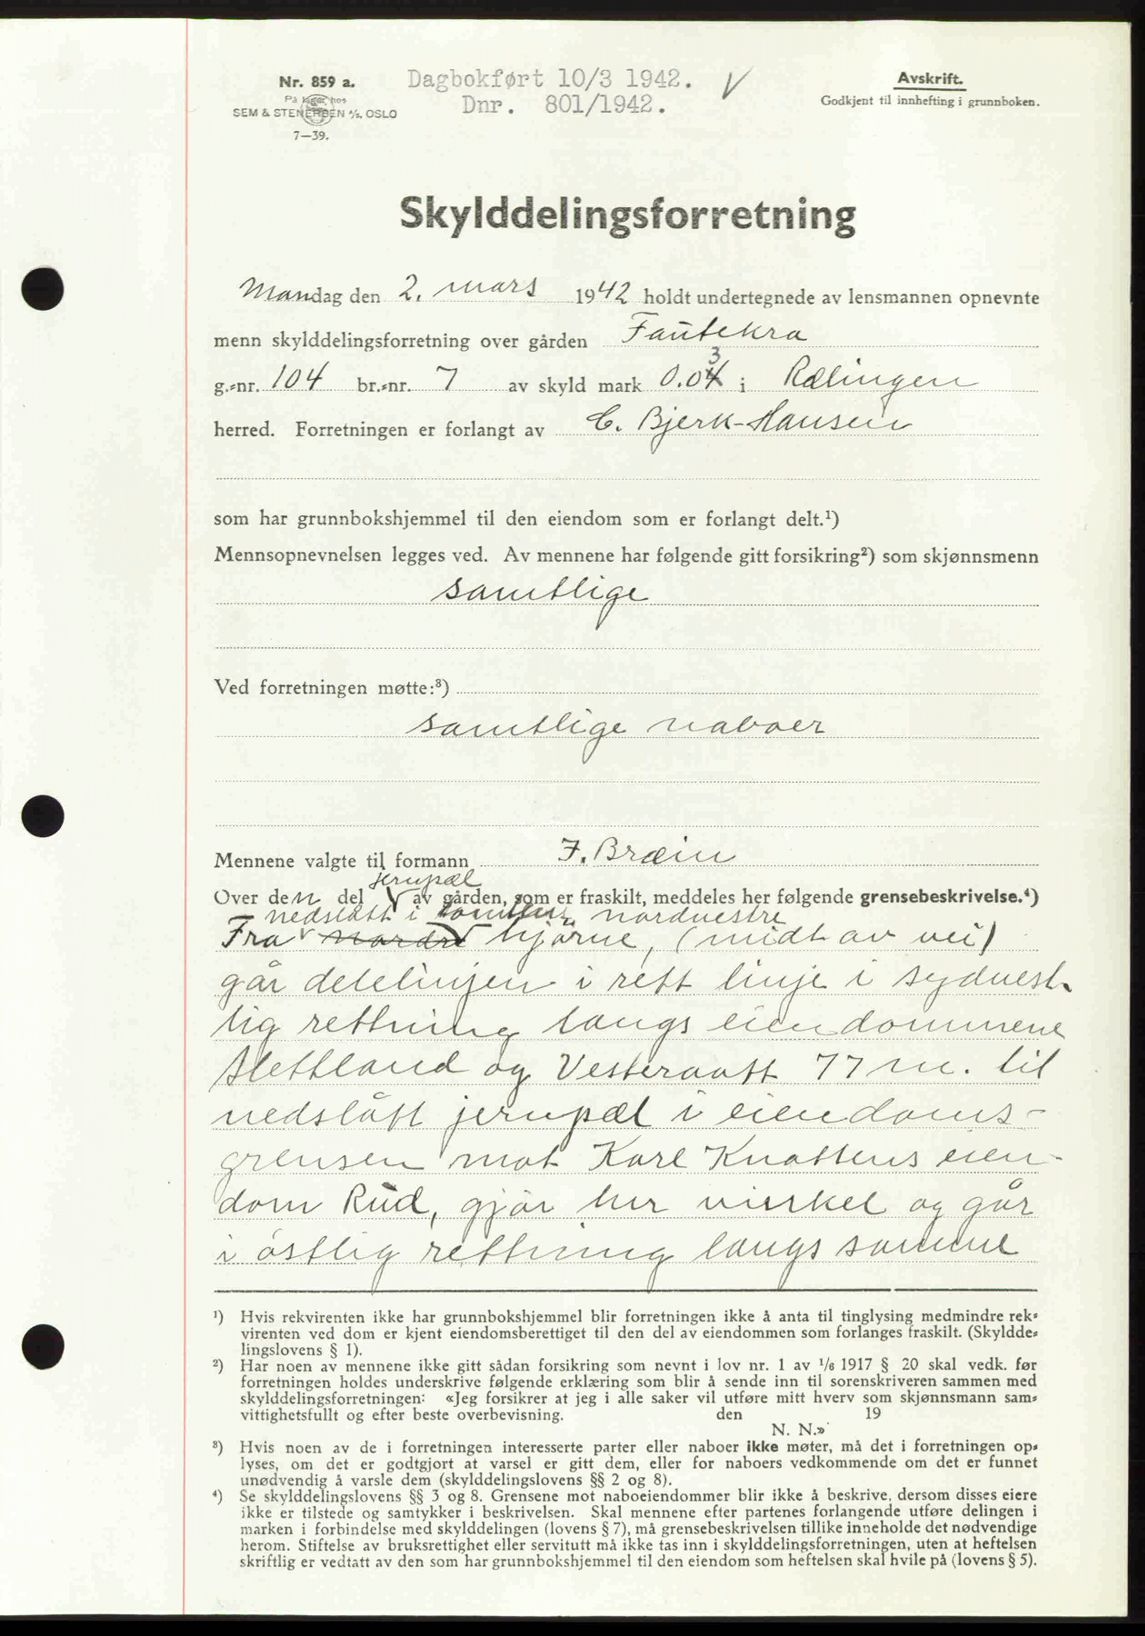 Nr. 859 a.
På lager hos
SEM & STENERSEN A/S. OSLO
7—39.
Dagbokført 10/3 1942.
Dnr. 801/1942.
Avskrift.
Godkjent til innhefting i grunnboken.
Skylddelingsforretning
Mandag den 2. mars 1942 holdt undertegnede av lensmannen opnevnte
menn skylddelingsforretning over gården Fautekra
3
g.-nr. 104 br.-nr. 7 av skyld mark 0.04 i Rælingen
herred. Forretningen er forlangt av C. Bjerk-Hansen
som har grunnbokshjemmel til den eiendom som er forlangt delt.¹)
Mennsopnevnelsen legges ved. Av mennene har følgende gitt forsikring²) som skjønnsmenn
samtlige
Ved forretningen møtte:³)
samtlige naboer
Mennene valgte til formann J. Bræin
jernpæl
Over den del av gården, som er fraskilt, meddeles her følgende grensebeskrivelse.⁴)
nedslått i tomtens nordvestre
Fra nordre hjørne, (midt av vei)
går delelinjen i rett linje i sydvest-
lig rettning langs eiendommene
Slettland og Vesteraatt 77 m. til
nedslått jernpæl i eiendoms-
grensen mot Karl Knattens eien-
dom Rud, gjør her vinkel og går
i østlig rettning langs samme
¹) Hvis rekvirenten ikke har grunnbokshjemmel blir forretningen ikke å anta til tinglysing medmindre rek-
virenten ved dom er kjent eiendomsberettiget til den del av eiendommen som forlanges fraskilt. (Skyldde-
lingslovens § 1).
²) Har noen av mennene ikke gitt sådan forsikring som nevnt i lov nr. 1 av 1/6 1917 § 20 skal vedk. før
forretningen holdes underskrive følgende erklæring som blir å sende inn til sorenskriveren sammen med
skylddelingsforretningen: «Jeg forsikrer at jeg i alle saker vil utføre mitt hverv som skjønnsmann sam-
vittighetsfullt og efter beste overbevisning. den 19
N. N.»
³) Hvis noen av de i forretningen interesserte parter eller naboer ikke møter, må det i forretningen op-
lyses, om det er godtgjort at varsel er gitt dem, eller for naboers vedkommende om det er funnet
unødvendig å varsle dem (skylddelingslovens §§ 2 og 8).
⁴) Se skylddelingslovens §§ 3 og 8. Grensene mot naboeiendommer blir ikke å beskrive, dersom disses eiere
ikke er tilstede og samtykker i beskrivelsen. Skal mennene efter partenes forlangende utføre delingen i
marken i forbindelse med skylddelingen (lovens § 7), må grensebeskrivelsen tillike inneholde det nødvendige
herom. Stiftelse av bruksrettighet eller servitutt må ikke tas inn i skylddelingsforretningen, uten at heftelsen
skriftlig er vedtatt av den som har grunnbokshjemmel til den eiendom som heftelsen skal hvile på (lovens § 5).